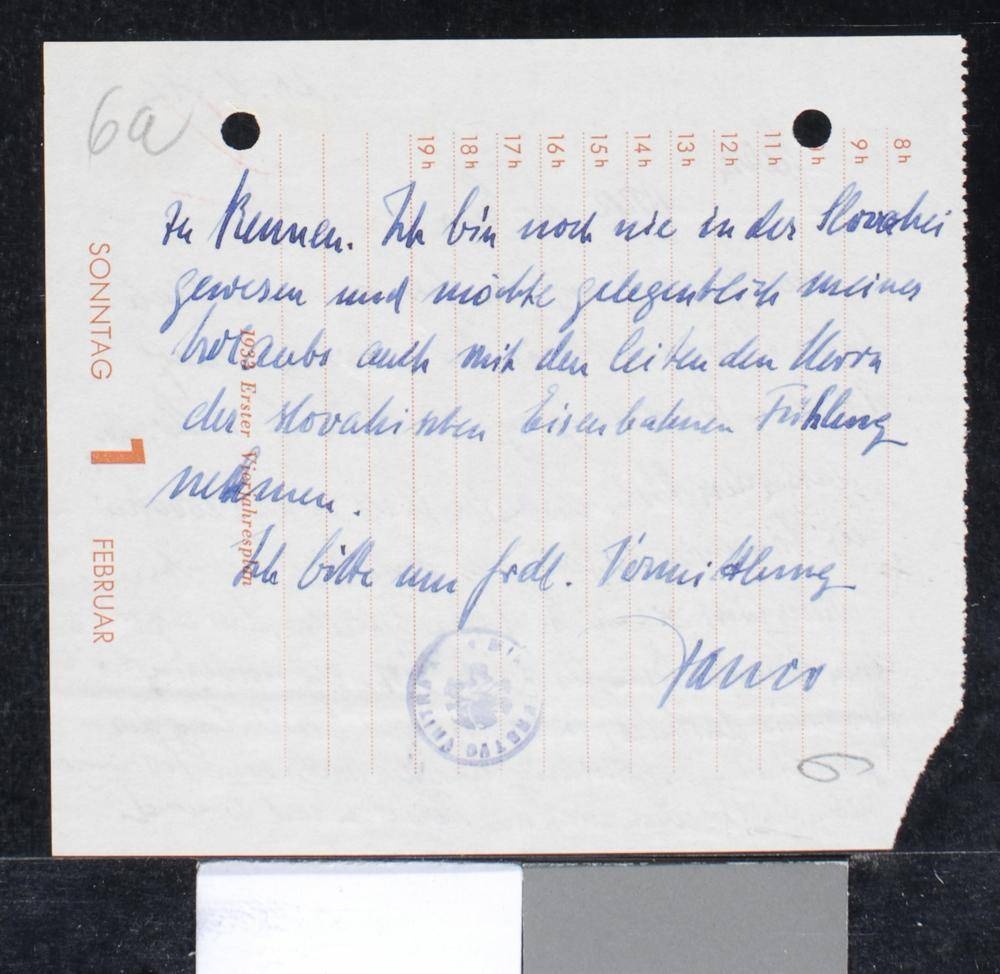 6a
19h 18h 17h 16h 15h 14h 13h 12h 11h h 9h 8h
zu Kennen. Ich bin noch nie in der Slovakei
gewesen und möchte gelegentlich meines
auch mit den leitenden Herrn
der slovakischen Eisenbahnen Fühlung
nehmen.
Ich bitte um frdl. Vermittlung
SONNTAG 1 FEBRUAR
1933 Erster Vierjahresplan
6